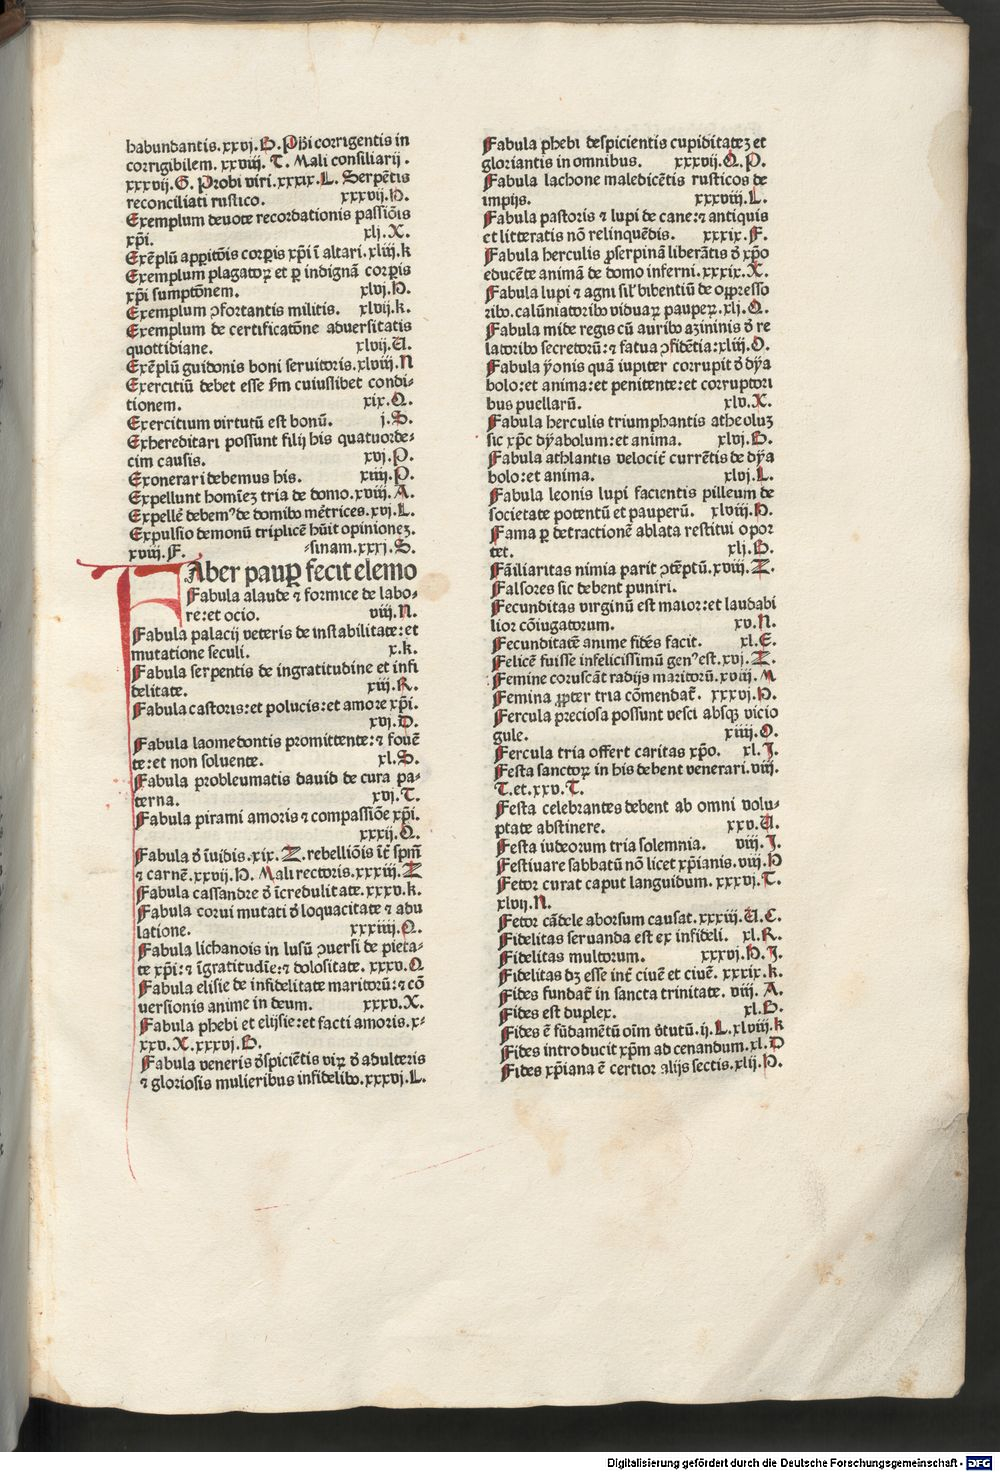 habundantis.xxvj.H.Pßi corrigentis in
corrigibilem. xxviij. T. Mali consiliarij.
xxxvij.G. Probi viri.xxxix.L. Serpētis
reconciliati rustico. xxxvij.H.
Exemplum deuote recordationis passiōis
xp̄i. xlj.X.
Exēplū apꝑitōis corꝑis xp̄i ī altari.xliij.k
Exemplum plagatoꝝ et ꝑ indignā corꝑis
xp̄i sumptōnem. xlvj.H.
Exemplum ꝯfortantis militis. xlvij.k.
Exemplum de certificatōne aduersitatis
quottidiane. xlvij.U.
Exēplū guidonis boni seruitoris.xlviij.N
Exercitiū debet esse ẜm cuiuslibet condi-
tionem. xix.Q.
Exercitium virtutū est bonū. j.S.
Exhereditari possunt filij his quatuorde-
cim causis. xvj.P.
Exonerari debemus his. xiiij.P.
Expellunt homīeꝫ tria de domo.xviij.A.
Expellē debemꝰ de domibꝰ mētrices.xvj.L.
Expulsio demonū triplicē hūit opinioneꝫ.
xviij.F. -sinam.xxxj.S.
FAber pauꝑ fecit elemo
Fabula alaude ⁊ formice de labo-
re:et ocio. viij.N.
Fabula palacij veteris de instabilitate:et
mutatione seculi. x.k.
Fabula serpentis de ingratitudine et infi
delitate. xiij.R.
Fabula castoris:et polucis:et amore xp̄i.
xvj.D.
Fabula laomedontis promittente:⁊ fouē
te:et non soluente. xl.S.
Fabula probleumatis dauid de cura pa-
terna. xvj.T.
Fabula pirami amoris ⁊ compassiōe xp̄i.
xxxij.Q.
Fabula ð īuidis.xix.Z.rebelliōis īt̄ spm̄
⁊ carnē.xxvij.H. Mali rectoris.xxxiij.Z
Fabula cassandre ð īcredulitate.xxxv.k.
Fabula corui mutati ð loquacitate ⁊ adu
latione. xxxiiij.Q.
Fabula lichanois in lusū ꝯuersi de pieta-
te xp̄i:⁊ īgratitudīe:⁊ dolositate. xxxv.Q.
Fabula elisie de infidelitate maritorū:⁊ cō
uersionis anime in deum. xxxv.X.
Fabula phebi et elijsie:et facti amoris.x-
xxv.X.xxxvj.B.
Fabula veneris ðspiciētis viꝝ ð adulteris
⁊ gloriosis mulieribus infidelibꝰ.xxxvj.L.
Fabula phebi despicientis cupiditateꝫ et
gloriantis in omnibus. xxxvij.Q.P.
Fabula lachone maledicētis rusticos de
impijs. xxxviij.L.
Fabula pastoris ⁊ lupi de cane:⁊ antiquis
et litteratis nō relinquēdis. xxxix.F.
Fabula herculis ꝓserpinā liberātis ð xp̄o
educēte animā de domo inferni.xxxix.X.
Fabula lupi ⁊ agni sil' bibentiū de oppresso
ribꝰ.calūniatoribꝰ viduaꝝ pauꝑeꝝ.xlj.Q.
Fabula mide regis cū auribꝰ azininis ð re
latoribꝰ secretorū:⁊ fatua ꝯfidētia:xliij.O.
Fabula ẏonis quā iupiter corrupit ð dẏa
bolo:et anima:et penitente:et corruptori
bus puellarū. xlv.X.
Fabula herculis triumphantis atheoluꝫ
sic xp̄c dẏabolum:et anima. xlvj.B.
Fabula athlantis velocit̄ currētis de dẏa
bolo:et anima. xlvj.L.
Fabula leonis lupi facientis pilleum de
societate potentū et pauperū. xlviij.H.
Fama ꝑ detractionē ablata restitui opor
tet. xlj.B.
Fāiliaritas nimia parit ꝯtēptū.xviij.Z.
Falsores sic debent puniri.
Fecunditas virginū est maior:et laudabi
lior cōiugatorum. xv.N.
Fecunditatē anime fidēs facit. xl.E.
Felicē fuisse infelicissimū genꝰ est.xvj.Z.
Femine coruscāt radijs maritorū.xviij.M
Femina ꝓpter tria cōmendat̄. xxxvj.H.
Fercula preciosa possunt vesci absqꝫ vicio
gule. xiiij.O.
Fercula tria offert caritas xp̄o. xl.J.
Festa sanctoꝝ in his debent venerari.viij.
T.et.xxv.T.
Festa celebrantes debent ab omni volu-
ptate abstinere. xxv.U.
Festa iudeorum tria solemnia. viij.J.
Festiuare sabbatū nō licet xp̄ianis.viij.H
Fetor curat caput languidum. xxxvj.T.
xlvij.N.
Fetor cādele aborsum causat.xxxiij.U.C.
Fidelitas seruanda est ex infideli. xl.R.
Fidelitas multorum. xxxvj.H.J.
Fidelitas dꝫ esse int̄ ciuē et ciuē. xxxix.k.
Fides fundat̄ in sancta trinitate. viij. A.
Fides est duplex. xl.B.
Fides ē fūdamētū oīm v̄tutū.ij.L.xlviij.k
Fides introducit xp̄m ad cenandum.xl.D
Fides xp̄iana ē certior alijs sectis.xlij.H.
Digitalisierung gefördert durch die Deutsche Forschungsgemeinschaft - DFG